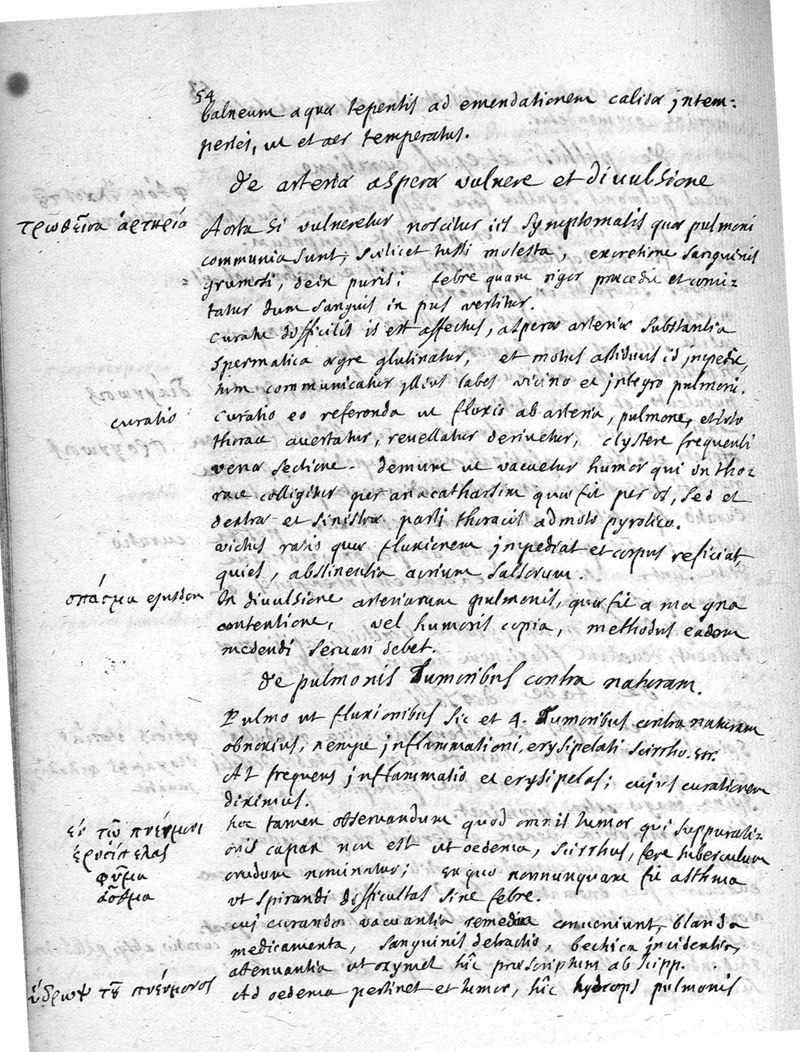 54
balneum aquæ tepentis ad emendationem calidæ intem:
periei, ut et aer temperatus.
de arteriæ asperæ vulnere et divulsione
τρωθεῖσα ἀρτηρία
Aorta si vulneretur noscitur iis symptomatis quæ pulmoni
communia sunt, scilicet tussi molesta, excretione sanguinis
grumosi, dein puris; febre quam rigor præcedit et comi:
tatur dum sanguis in pus vertitur.
curatu difficilis is est affectus, asperæ arteriæ substantia
spermatica ægre glutinatur, et motus assiduus id impedit,
nim communicatur illius labes vicino et integro pulmoni.
curatio
curatio eo referenda ut fluxio ab arteria, pulmone, et toto
thorace avertatur, revellatur derivetur, clystere frequenti
venæ sectione. demum ut vacuetur humor qui in tho:
race colligitur per anacatharsim quæ fit per os, sed et
dextræ et sinistræ parti thoracis admoto pyrotico.
victus ratio quæ fluxionem impediat et corpus reficiat,
quies, abstinentia acrium salsorum.
σπάσμα ejusdem
In divulsione arteriarum pulmonis, quæ fit a magna
contentione, vel humoris copia, methodus eadem
medendi servari debet.
de pulmonis Tumoribus contra naturam.
Pulmo ut fluxionibus sic et 4. Tumoribus contra naturam
obnoxius, nempe inflammationi, erysipelati scirrho. etc.
At frequens inflammatio et erysipelas; cujus curationem
diximus.
ἐν τῷ πνεύμονι
ἐρυσίπελας
φῦμα
ἆσθμα
hoc tamen observandum quod omnis tumor qui suppurati:
onis capax non est ut oedema, scirrhus, fere tuberculum
crudum nominatur; ex quo nonnunquam fit asthma
ut spirandi difficultas sine febre.
cui curandæ vacuantia remedia conveniunt, blanda
medicamenta, sanguinis detractio, bechica incidentia,
attenuantia ut oxymel hîc præscriptum ab hipp.
ὕδρωψ τοῦ πνεύμονος
Ad oedema pertinet et tumor, hîc hydrops pulmonis